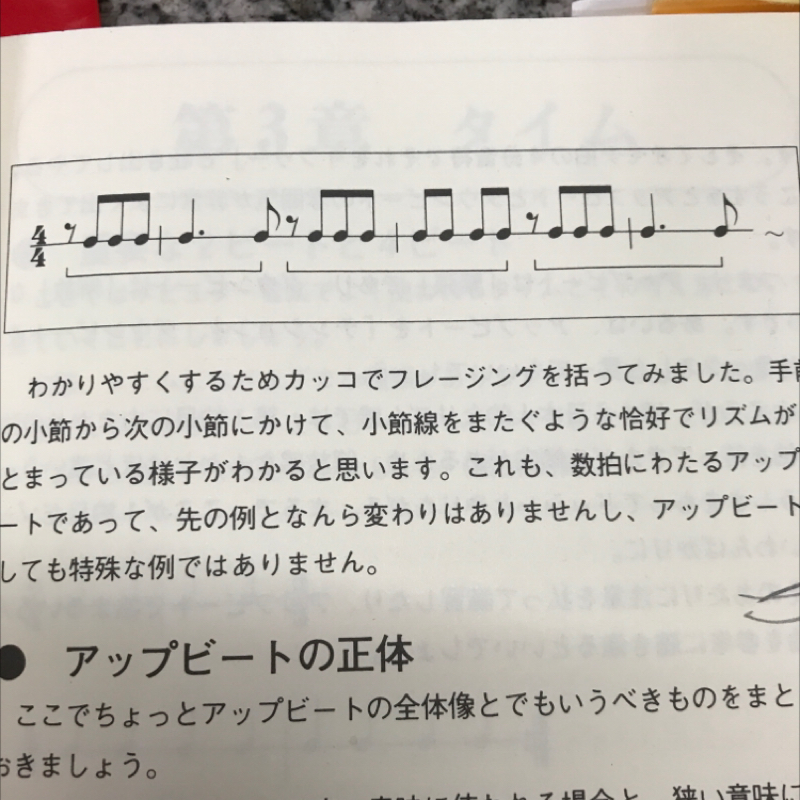 4
4
わかりやすくするためカッコでフレージングを括ってみました。手前
の小節から次の小節にかけて、小節線をまたぐような恰好でリズムが
とまっている様子がわかると思います。これも、数拍にわたるアップ
ートであって、先の例となんら変わりはありませんし、アップビート
しても特殊な例ではありません。
● アップビートの正体
ここでちょっとアップビートの全体像とでもいうべきものをまと
おきましょう。